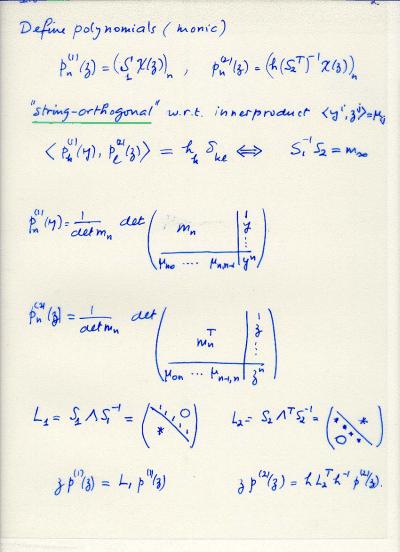 Define polynomials (monic)
p_n^{(1)}(z) = (S_1 χ(z))_n , p_n^{(2)}(z) = (h(S_2^T)^{-1} χ(z))_n
"string-orthogonal" w.r.t. innerproduct ⟨y^i, z^j⟩ = μ_{ij}
⟨p_k^{(1)}(y), p_ℓ^{(2)}(z)⟩ = h_k δ_{kℓ} ⟺ S_1^{-1} S_2 = m_∞
p_n^{(1)}(y) = 1/det m_n det ( m_n | 1 y ⋮ 
μ_{n0} ···· μ_{n,n-1} | y^n )
p_n^{(2)}(z) = 1/det m_n det ( m_n^T | 1 z ⋮ 
μ_{0n} ··· μ_{n-1,n} | z^n )
L_1 = S_1 Λ S_1^{-1} = ( 1 1 1 O * ) L_2 = S_2 Λ^T S_2^{-1} = ( * * * * O * )
z p^{(1)}(z) = L_1 p^{(1)}(z) z p^{(2)}(z) = h L_2^T h^{-1} p^{(2)}(z).